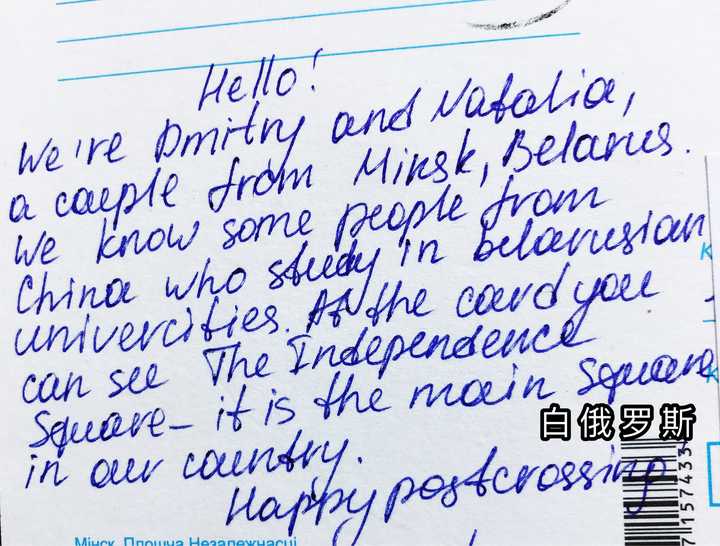 Hello!
We're Dmitry and Natalia,
a couple from Minsk, Belarus.
We know some people from
China who study in belarusian
univercities. At the card you
can see The Independence
Square – it is the main square
in our country.
Happy postcrossing
白俄罗斯
Мінск. Плошча Незалежнасці
7157433